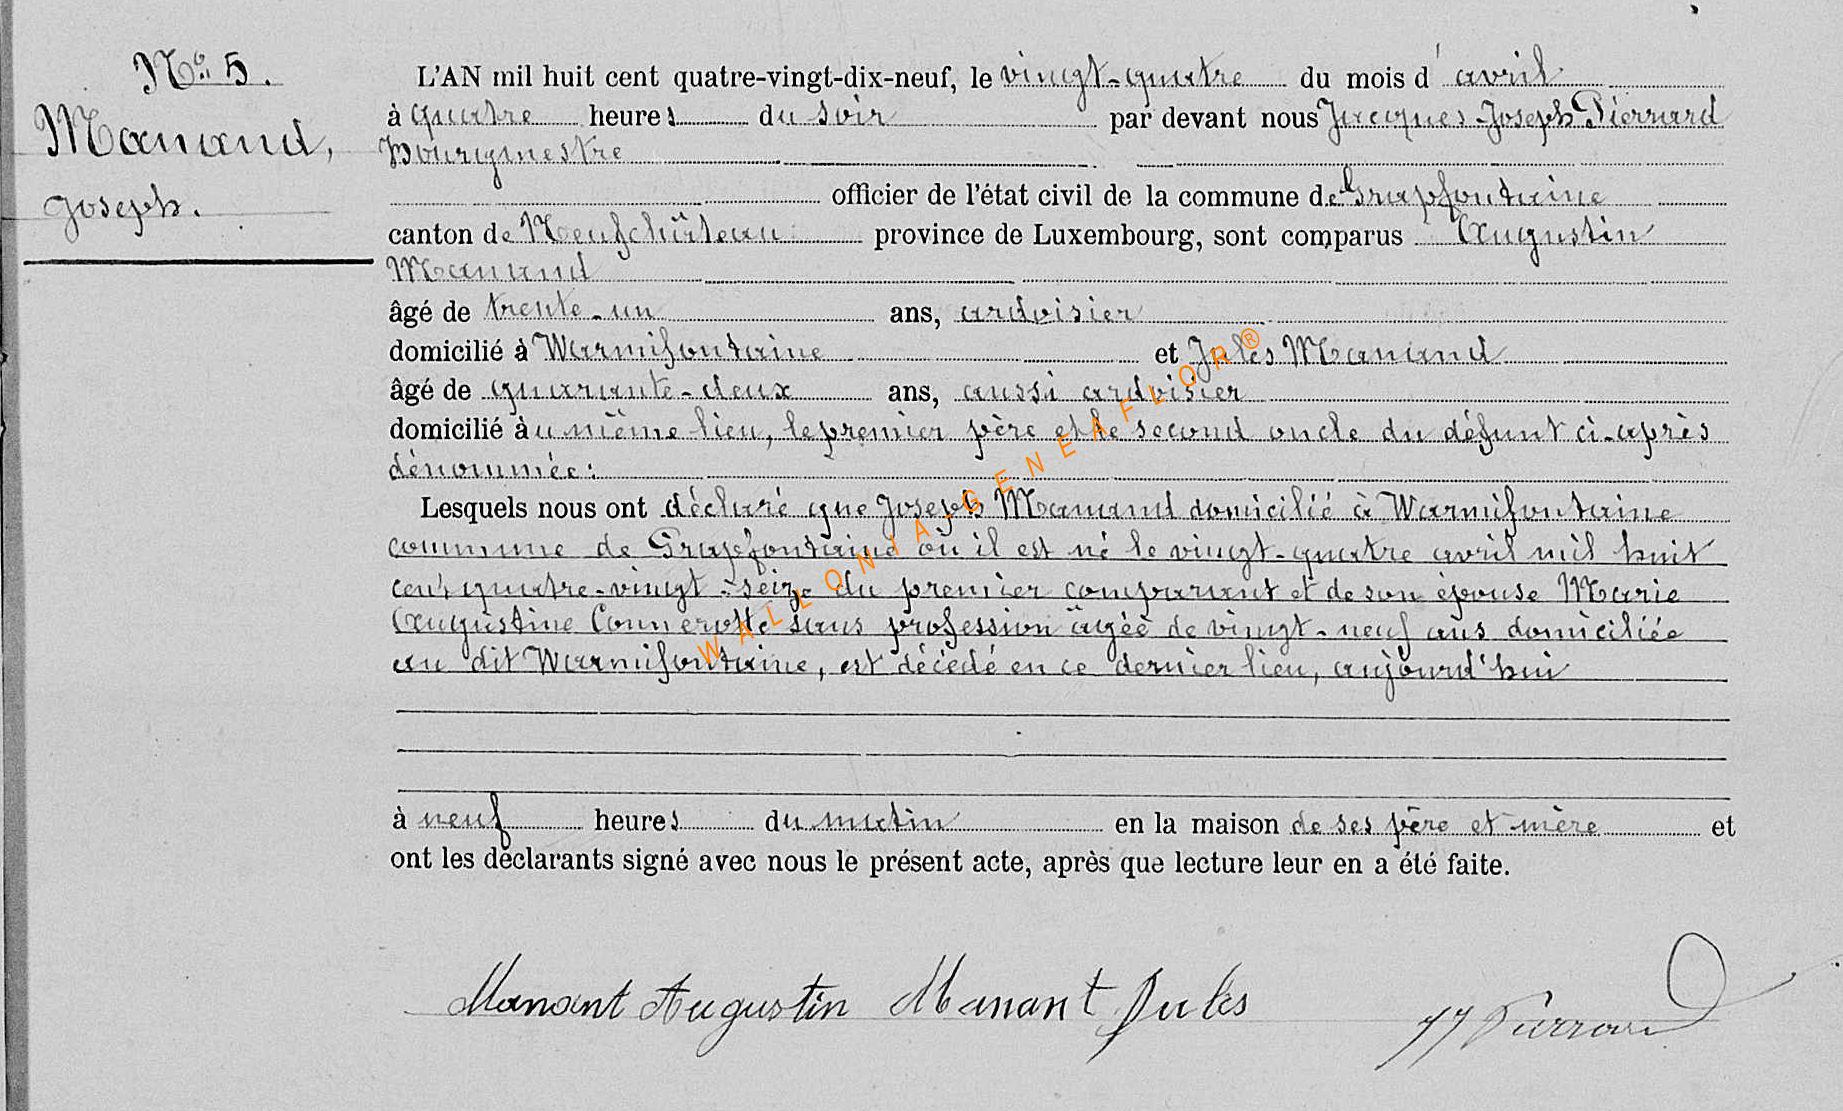 No 5.
Manand,
Joseph.
L'AN mil huit cent quatre-vingt-dix-neuf, le vingt-quatre du mois d'avril
à quatre heures du soir par devant nous Jacques-Joseph Pierrard
Bourgmestre
officier de l'état civil de la commune de Grapfontaine
canton de Neufchâteau province de Luxembourg, sont comparus Augustin
Manand
âgé de trente-un ans, ardoisier
domicilié à Warmifontaine et Jules Manand
âgé de quarante-deux ans, aussi ardoisier
domicilié àu même lieu, le premier père et le second oncle du défunt ci-après
dénommée:
Lesquels nous ont déclaré que Joseph Manand domicilié à Warmifontaine
commune de Grapfontaine où il est né le vingt-quatre avril mil huit
cent quatre-vingt-seize du premier comparant et de son épouse Marie
Augustine Connerotte sans profession âgée de vingt-neuf ans domiciliée
au dit Warmifontaine, est décédé en ce dernier lieu, aujourd'hui
à neuf heures du matin en la maison de ses père et mère et
ont les déclarants signé avec nous le présent acte, après que lecture leur en a été faite.
Manant Augustin Manant Jules JJ Pierrard
WALLONIA-GENEAFLOR®